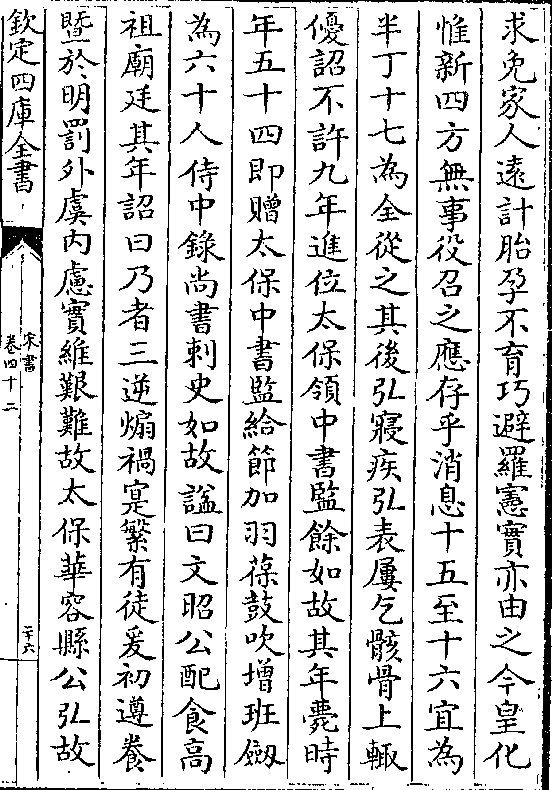 求免家人遠計胎孕不育巧避羅憲實亦由之今皇化
惟新四方無事役召之應存乎消息十五至十六宜為
半丁十七為全從之其後弘寢疾弘表屢乞骸骨上輙
優詔不許九年進位太保領中書監餘如故其年薨時
年五十四即贈太保中書監給節加羽葆鼓吹增班劔
為六十人侍中錄尚書刺史如故諡曰文昭公配食高
祖廟廷其年詔曰乃者三逆煽禍寔繁有徒爰初遵養
暨於明罰外虞内慮實維艱難故太保華容縣公弘故
欽定四庫全書
宋書
卷四十二
二十六